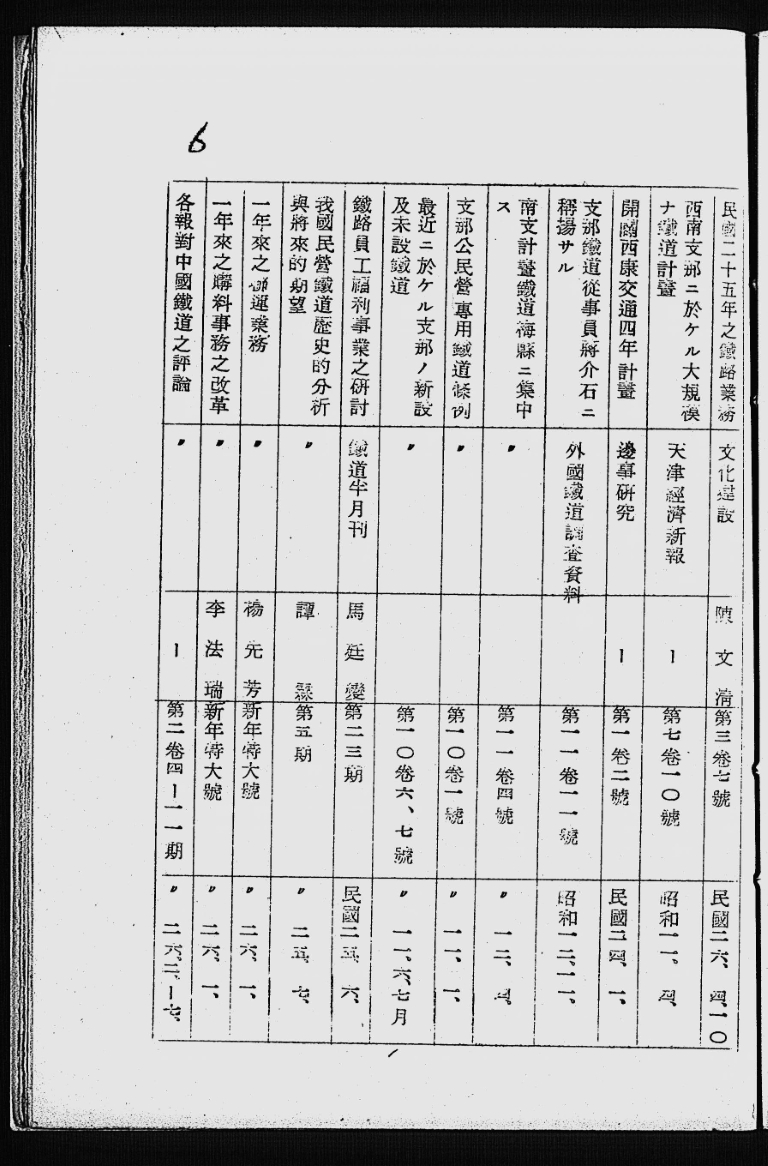 6
民國二十五年之鐵路業務
文化建設
陳文清
第三卷七號
民國二六、四、一〇
西南支那ニ於ケル大規模
ナ鐵道計畫
天津經濟新報
ー
第七卷一〇號
昭和一一、四、
開闢西康交通四年計畫
邊事研究
ー
第一卷二號
民國二四、一、
支那鐵道從事員蔣介石ニ
稱揚サル
外國鐵道調査資料
第一一卷一一號
昭和一二、一一、
南支計畫鐵道梅縣ニ集中
ス
〃
第一一卷四號
〃 一二、四、
支那公民營專用鐵道條例
〃
第一〇卷一號
〃 一一、一、
最近ニ於ケル支那ノ新設
及未設鐵道
〃
第一〇卷六、七號
〃 一一、六、七月
鐵路員工福利事業之研討
鐵道半月刊
馬廷燮
第二三期
民國二五、六、
我國民營鐵道歷史的分析
與將來的期望
〃
譚
第五期
〃 二五、七、
一年來之聯運業務
〃
楊先芳
新年特大號
〃 二六、一、
一年來之購料事務之改革
〃
李法瑞
新年特大號
〃 二六、一、
各報對中國鐵道之評論
〃
ー
第二卷四ー一一期
〃 二六、二、ー七、